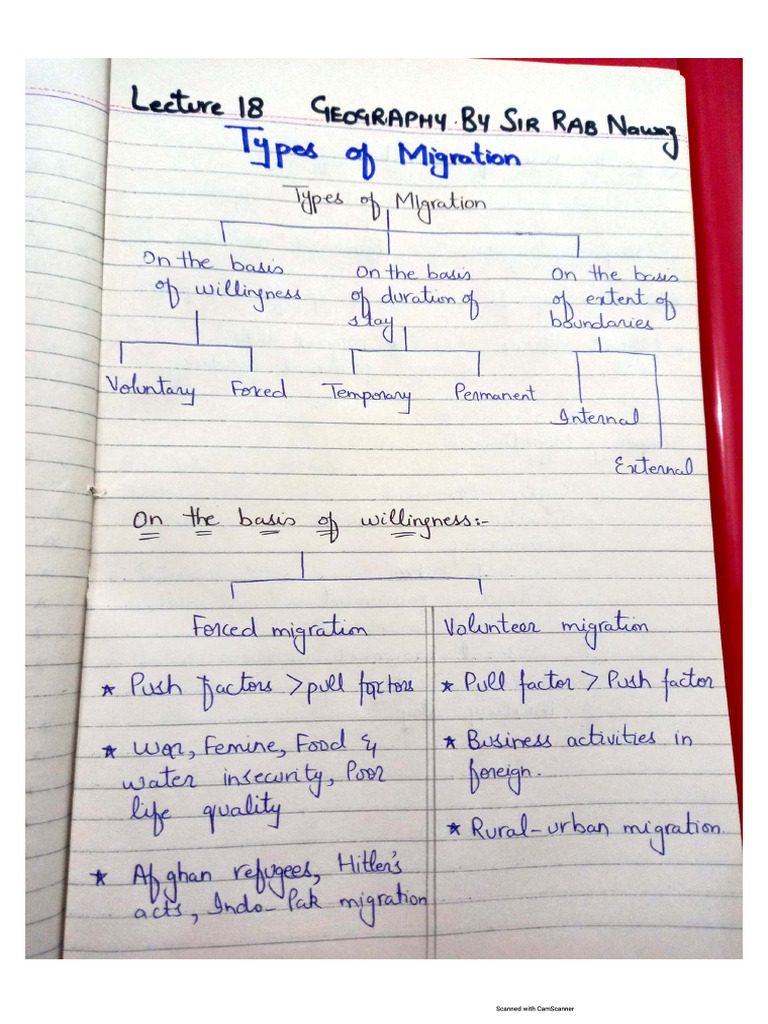 Lecture 18 GEOGRAPHY. By SIR RAB Nawaz
Types of Migration
Types of MIgration
On the basis of willingness
On the basis of duration of stay
On the basis of extent of boundaries
Voluntary Forced Temporary Permanent
Internal
External
On the basis of willingness:-
Forced migration
★ Push factors > pull factors
★ War, Femine, Food &
water insecurity, Poor
life quality
★ Afghan refugees, Hitler's
acts, Indo-Pak migration
Volunteer migration
★ Pull factor > Push factor
★ Business activities in
foreign.
★ Rural-urban migration.
Scanned with CamScanner